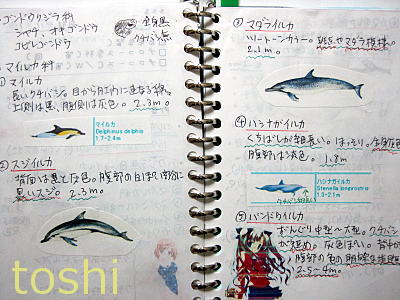 ゴンドウクジラ科
シャチ、オキゴンドウ
コビレゴンドウ
全身黒
クチバシ無
◎マイルカ科
①マイルカ
長いクチバシ。目から
上側は黒、腹側は灰色。2.3m。
マイルカ
Delphinus delphis
1.7-2.4m
②スジイルカ
背面は黒と灰色。腹部の白い部分に
黒いスジ。2.3m。
③マダライルカ
ツートーンカラー。斑点やマダラ模様。
2.1m。
④ハシナガイルカ
くちばしが細長い。ほっそり。全身灰色
腹部は淡灰色。1.8m
ハシナガイルカ
Stenella longirostris
1.3-2.1m
クチバシが
⑤バンドウイルカ
ずんぐり中型〜大型。クチバシ
が短め。灰色ぽい。背中から
腹部の色の
2.5〜4m。
toshi